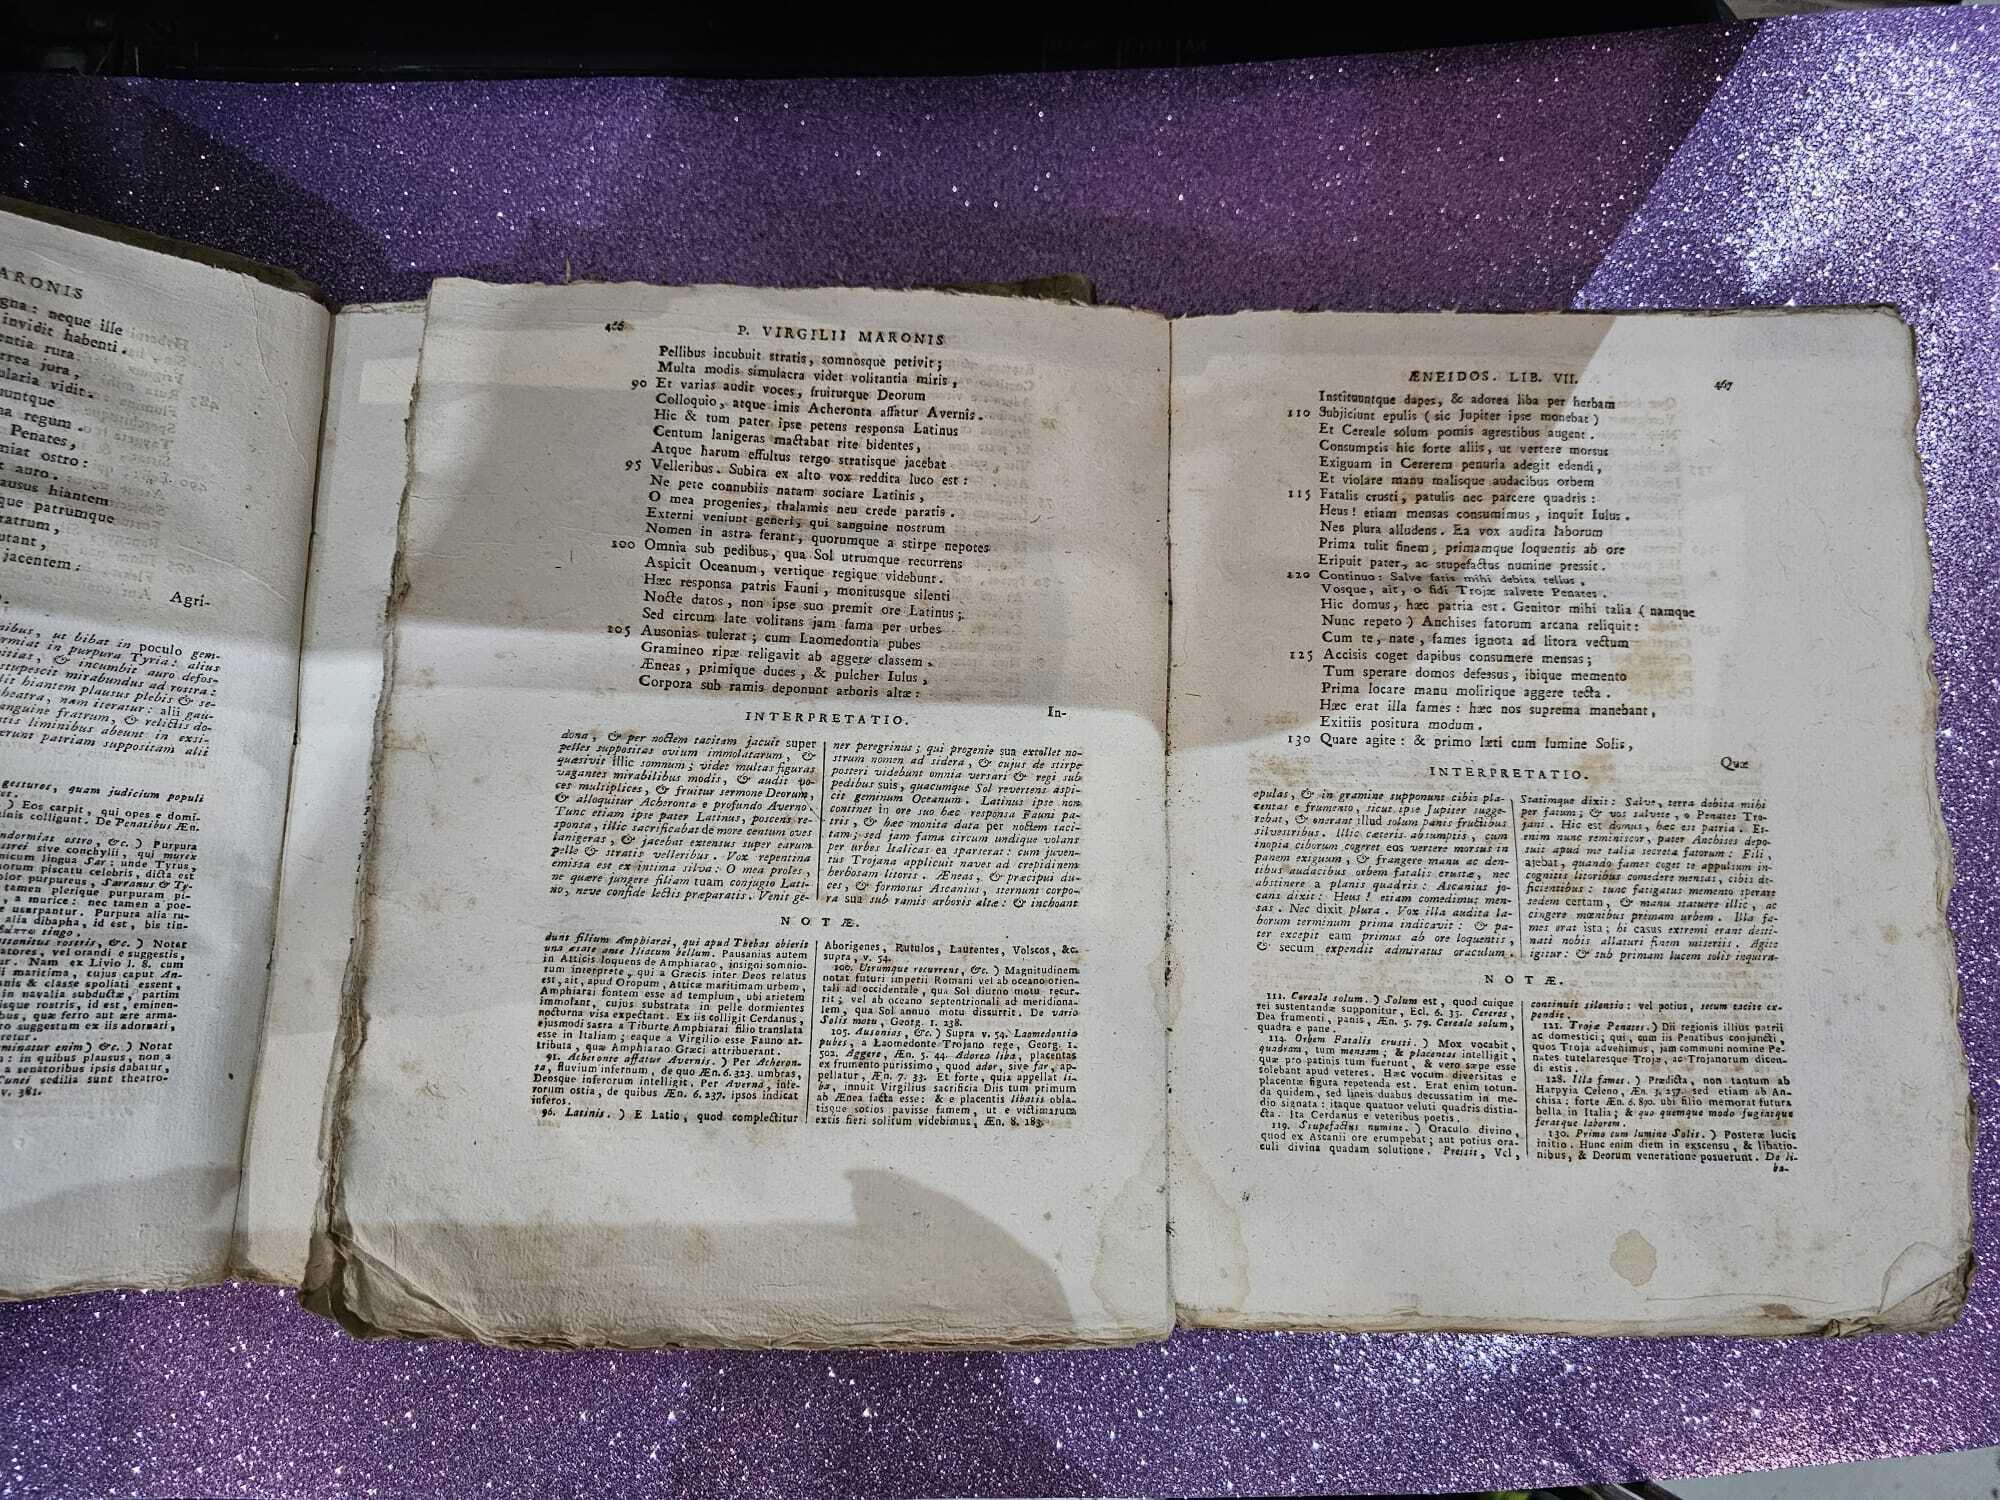 ARONIS
gna: neque ille
invidit habenti.
entia rura.
rrea jura,
ularia vidit.
uuntque
na regum.
Penates,
miat ostro:
t auro.
ausus hiantem
que patrumque
ratrum,
utant,
jacentem:
Agri-
nibus, ut bibat in poculo gem-
ormiat in purpura Tyria: alius
itias, & incumbit auro defos-
stupescit mirabundus ad rostra:
lit hiantem plausus plebis & se-
heatra, nam iteratur: alii gau-
anguine fratrum, & relictis do-
tis liminibus abeunt in exsi-
erunt patriam suppositam alii
gesturos, quam judicium populi
) Eos carpit, qui opes e domi-
inis colligunt. De Penatibus Æn.
ndormiat ostro, &c. ) Purpura
strei sive conchylii, qui murex
nicum lingua Sar: unde Tyrus,
norum piscatu celebris, dicta est
olor purpureus, Sarranus & Ty-
tamen plerique purpuram pi-
, a murice: nec tamen a poe-
e usurpantur. Purpura alia ru-
alia dibapha, id est, bis tin-
βάπτω tingo.
ttonitus rostris, &c. ) Notat
atores, vel orandi e suggestis,
ur. Nam ex Livio l. 8. cum
ii maritima, cujus caput An-
anis & classe spoliati essent,
in navalia subductæ, partim
isque rostris, id est, eminen-
bus, quæ ferro aut ære arma-
ro suggestum ex iis adornari,
retur.
minatur enim ) &c. ) Notat
n: in quibus plausus, non a
a senatoribus ipsis dabatur,
Cunei sedilia sunt theatro-
v. 381.
466 P. VIRGILII MARONIS
Pellibus incubuit stratis, somnosque petivit;
Multa modis simulacra videt volitantia miris,
90 Et varias audit voces, fruiturque Deorum
Colloquio, atque imis Acheronta affatur Avernis.
Hic & tum pater ipse petens responsa Latinus
Centum lanigeras mactabat rite bidentes,
Atque harum effultus tergo stratisque jacebat
95 Velleribus. Subita ex alto vox reddita luco est:
Ne pete connubiis natam sociare Latinis,
O mea progenies, thalamis neu crede paratis.
Externi veniunt generi, qui sanguine nostrum
Nomen in astra ferant, quorumque a stirpe nepotes
100 Omnia sub pedibus, qua Sol utrumque recurrens
Aspicit Oceanum, vertique regique videbunt.
Hæc responsa patris Fauni, monitusque silenti
Nocte datos, non ipse suo premit ore Latinus;
Sed circum late volitans jam fama per urbes
105 Ausonias tulerat; cum Laomedontia pubes
Gramineo ripæ religavit ab aggere classem.
Æneas, primique duces, & pulcher Iulus,
Corpora sub ramis deponunt arboris altæ:
In-
INTERPRETATIO.
dona, & per noctem tacitam jacuit super
pelles suppositas ovium immolatarum, &
quæsivit illic somnum; videt multas figuras
vagantes mirabilibus modis, & audit vo-
ces multiplices, & fruitur sermone Deorum,
& alloquitur Acheronta e profundo Averno.
Tunc etiam ipse pater Latinus, poscens re-
sponsa, illic sacrificabat de more centum oves
lanigeras, & jacebat extensus super earum
pelle & stratis velleribus. Vox repentina
emissa est ex intima silva: O mea proles,
ne quære jungere filiam tuam conjugio Lati-
no, neve confide lectis præparatis. Venit ge-
ner peregrinus; qui progenie sua extollet no-
strum nomen ad sidera, & cujus de stirpe
posteri videbunt omnia versari & regi sub
pedibus suis, quacumque Sol revertens aspi-
cit geminum Oceanum. Latinus ipse non
continet in ore suo hæc responsa Fauni pa-
tris, & hæc monita data per noctem taci-
tam; sed jam fama circum undique volans
per urbes Italicas ea sparserat: cum juven-
tus Trojana applicuit naves ad crepidinem
herbosam litoris. Æneas, & præcipui du-
ces, & formosus Ascanius, sternunt corpo-
ra sua sub ramis arboris altæ: & inchoant
NOTÆ.
dunt filium Amphiarai, qui apud Thebas obierit
una ætate ante Iliacum bellum. Pausanias autem
in Atticis loquens de Amphiarao, insigni somnio-
rum interprete, qui a Græcis inter Deos relatus
est, ait, apud Oropum, Atticæ maritimam urbem,
Amphiarai fontem esse ad templum, ubi arietem
immolant, cujus substrata in pelle dormientes
nocturna visa expectant. Ex iis colligit Cerdanus,
ejusmodi sacra a Tiburte Amphiarai filio translata
esse in Italiam; eaque a Virgilio esse Fauno at-
tributa, quæ Amphiarao Græci attribuerant.
91. Acheronta affatur Avernis. ) Per Acheron-
ta, fluvium infernum, de quo Æn. 6. 323. umbras,
Deosque inferorum intelligit. Per Averna, infe-
rorum ostia, de quibus Æn. 6. 237. ipsos indicat
inferos.
96. Latinis. ) E Latio, quod complectitur
Aborigenes, Rutulos, Laurentes, Volscos, &c.
supra, v. 54.
100. Utrumque recurrens, &c. ) Magnitudinem
notat futuri imperii Romani vel ab oceano orien-
tali ad occidentale, qua Sol diurno motu recur-
rit; vel ab oceano septentrionali ad meridiona-
lem, qua Sol annuo motu discurrit. De vario
Solis motu, Georg. 1. 238.
105. Ausonias, &c. ) Supra v. 54. Laomedontia
pubes, a Laomedonte Trojano rege, Georg. 1.
502. Aggere, Æn. 5. 44. Adorea liba, placentas
ex frumento purissimo, quod ador, sive far, ap-
pellatur, Æn. 7. 33. Et forte, quia appellat li-
ba, innuit Virgilius sacrificia Diis tum primum
ab Ænea facta esse: & e placentis libatis obla-
tisque socios pavisse famem, ut e victimarum
extis fieri solitum videbimus, Æn. 8. 183.
ÆNEIDOS. LIB. VII. 467
Instituuntque dapes, & adorea liba per herbam
110 Subjiciunt epulis ( sic Jupiter ipse monebat )
Et Cereale solum pomis agrestibus augent.
Consumptis hic forte aliis, ut vertere morsus
Exiguam in Cererem penuria adegit edendi,
Et violare manu malisque audacibus orbem
115 Fatalis crusti, patulis nec parcere quadris:
Heus! etiam mensas consumimus, inquit Iulus.
Nec plura alludens. Ea vox audita laborum
Prima tulit finem, primamque loquentis ab ore
Eripuit pater, ac stupefactus numine pressit.
120 Continuo: Salve fatis mihi debita tellus,
Vosque, ait, o fidi Trojæ salvete Penates.
Hic domus, hæc patria est. Genitor mihi talia ( namque
Nunc repeto ) Anchises fatorum arcana reliquit:
Cum te, nate, fames ignota ad litora vectum
125 Accisis coget dapibus consumere mensas;
Tum sperare domos defessus, ibique memento
Prima locare manu molirique aggere tecta.
Hæc erat illa fames: hæc nos suprema manebant,
Exitiis positura modum.
130 Quare agite: & primo læti cum lumine Solis,
Quæ
INTERPRETATIO.
epulas, & in gramine supponunt cibis pla-
centas e frumento, sicut ipse Jupiter sugge-
rebat, & onerant illud solum panis fructibus
silvestribus. Illic cæteris absumptis, cum
inopia ciborum cogeret eos vertere morsus in
panem exiguum, & frangere manu ac den-
tibus audacibus orbem fatalis crustæ, nec
abstinere a planis quadris: Ascanius jo-
cans dixit: Heus! etiam comedimus men-
sas. Nec dixit plura. Vox illa audita la-
borum terminum prima indicavit: & pa-
ter excepit eam primus ab ore loquentis,
& secum expendit admiratus oraculum.
Statimque dixit: Salve, terra debita mihi
per fatum; & vos salvete, o Penates Tro-
jani. Hic est domus, hæc est patria. Et-
enim nunc reminiscor, pater Anchises depo-
suit apud me talia secreta fatorum: Fili,
ajebat, quando fames coget te appulsum in-
cognitis litoribus comedere mensas, cibis de-
ficientibus: tunc fatigatus memento sperare
sedem certam, & manu statuere illic, ac
cingere mœnibus primam urbem. Illa fa-
mes erat ista; hi casus extremi erant desti-
nati nobis allaturi finem miseriis. Agite
igitur: & sub primam lucem solis inquira-
NOTÆ.
111. Cereale solum. ) Solum est, quod cuique
rei sustentandæ supponitur, Ecl. 6. 35. Cereris,
Dea frumenti, panis, Æn. 5. 79. Cereale solum,
quadra e pane.
114. Orbem Fatalis crusti. ) Mox vocabit,
quadram, tum mensam; & placentas intelligit,
quæ pro patinis tum fuerunt, & vero sæpe esse
solebant apud veteres. Hæc vocum diversitas e
placentæ figura repetenda est. Erat enim rotun-
da quidem, sed lineis duabus decussatim in me-
dio signata: itaque quatuor veluti quadris distin-
cta. Ita Cerdanus e veteribus poetis.
119. Stupefactus numine. ) Oraculo divino,
quod ex Ascanii ore erumpebat; aut potius ora-
culi divina quadam solutione. Pressit, Vel,
continuit silentio: vel potius, secum tacite ex-
pendit.
121. Trojæ Penates. ) Dii regionis illius patrii
ac domestici; qui, cum iis Penatibus conjuncti,
quos Troja advehimus, jam communi nomine Pe-
nates tutelaresque Trojæ, ac Trojanorum dicen-
di estis.
128. Illa fames. ) Prædicta, non tantum ab
Harpyia Celeno, Æn. 3. 257. sed etiam ab An-
chisa: forte Æn. 6. 890. ubi filio memorat futura
bella in Italia; & quo quemque modo fugiatque
feratque laborem.
130. Primo cum lumine Solis. ) Posteræ lucis
initio. Hunc enim diem in exscensu, & libatio-
nibus, & Deorum veneratione posuerunt. De li-
ba-